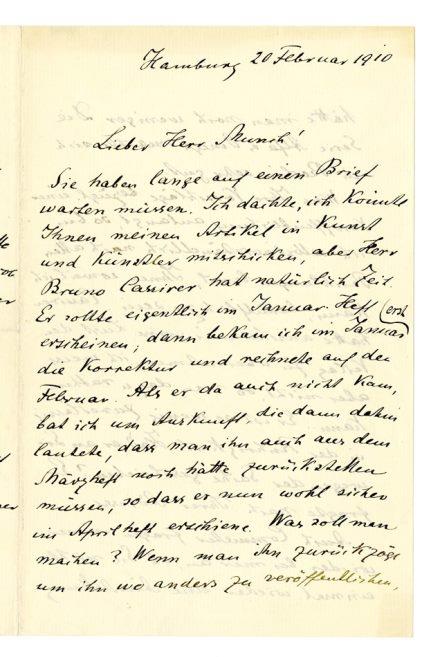 Hamburg 20 Februar 1910
Lieber Herr Munch!
Sie haben lange auf einen Brief
warten müssen. Ich dachte, ich könnte
Ihnen meinen Artikel in Kunst
und Künstler mitschicken, aber Herr
Bruno Cassirer hat natürlich Zeit.
Er sollte eigentlich im Januar Heft (erst
erscheinen, dann bekam ich im Januar
die Korrektur und rechnete auf den
Februar. Als er da auch nicht kam,
bat ich um Auskunft, die dann dahin
lautete, dass man ihn auch aus dem
Märzheft noch hätte zurückstellen
müssen, so dass er nun wohl sicher
im Aprilheft erschiene. Was soll man
machen? Wenn man ihn zurückzöge
um ihn wo anders zu veröffentlichen,